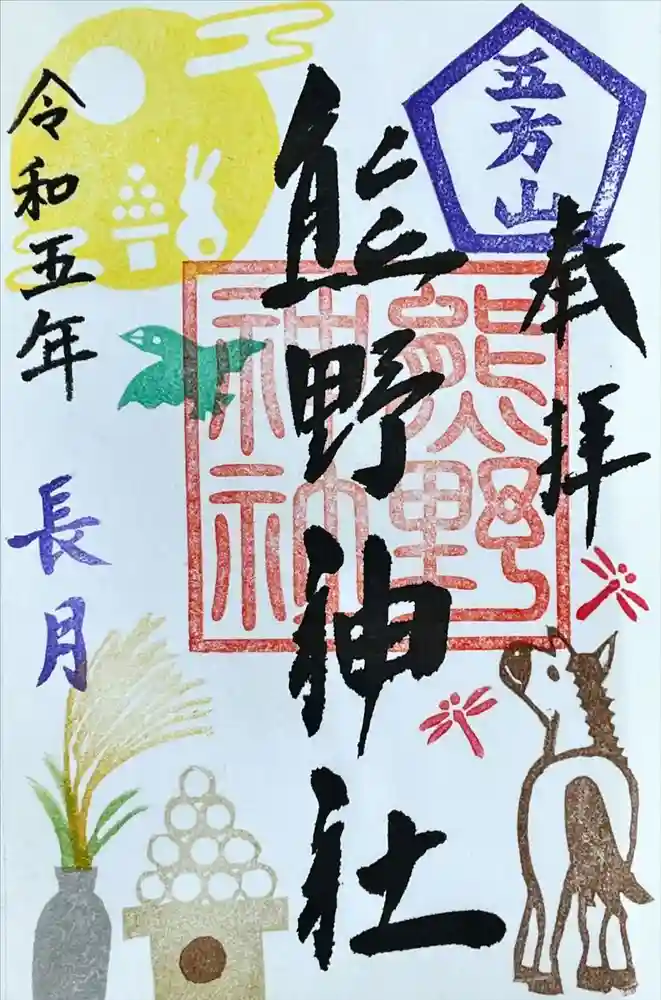 五方山
奉拝
熊野
神
熊野神社
令和五年
長月